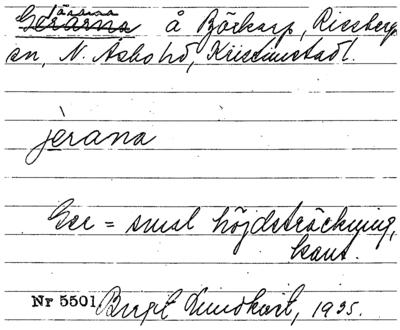 Järarna
Gerarna å Böckarp, Risseberga
sn, N. Åsbo hd, Kristianstad l.
jèrana
Ger = smal höjdsträckning,
kant.
Nr 5501 Birgit Lundkvist, 1935.